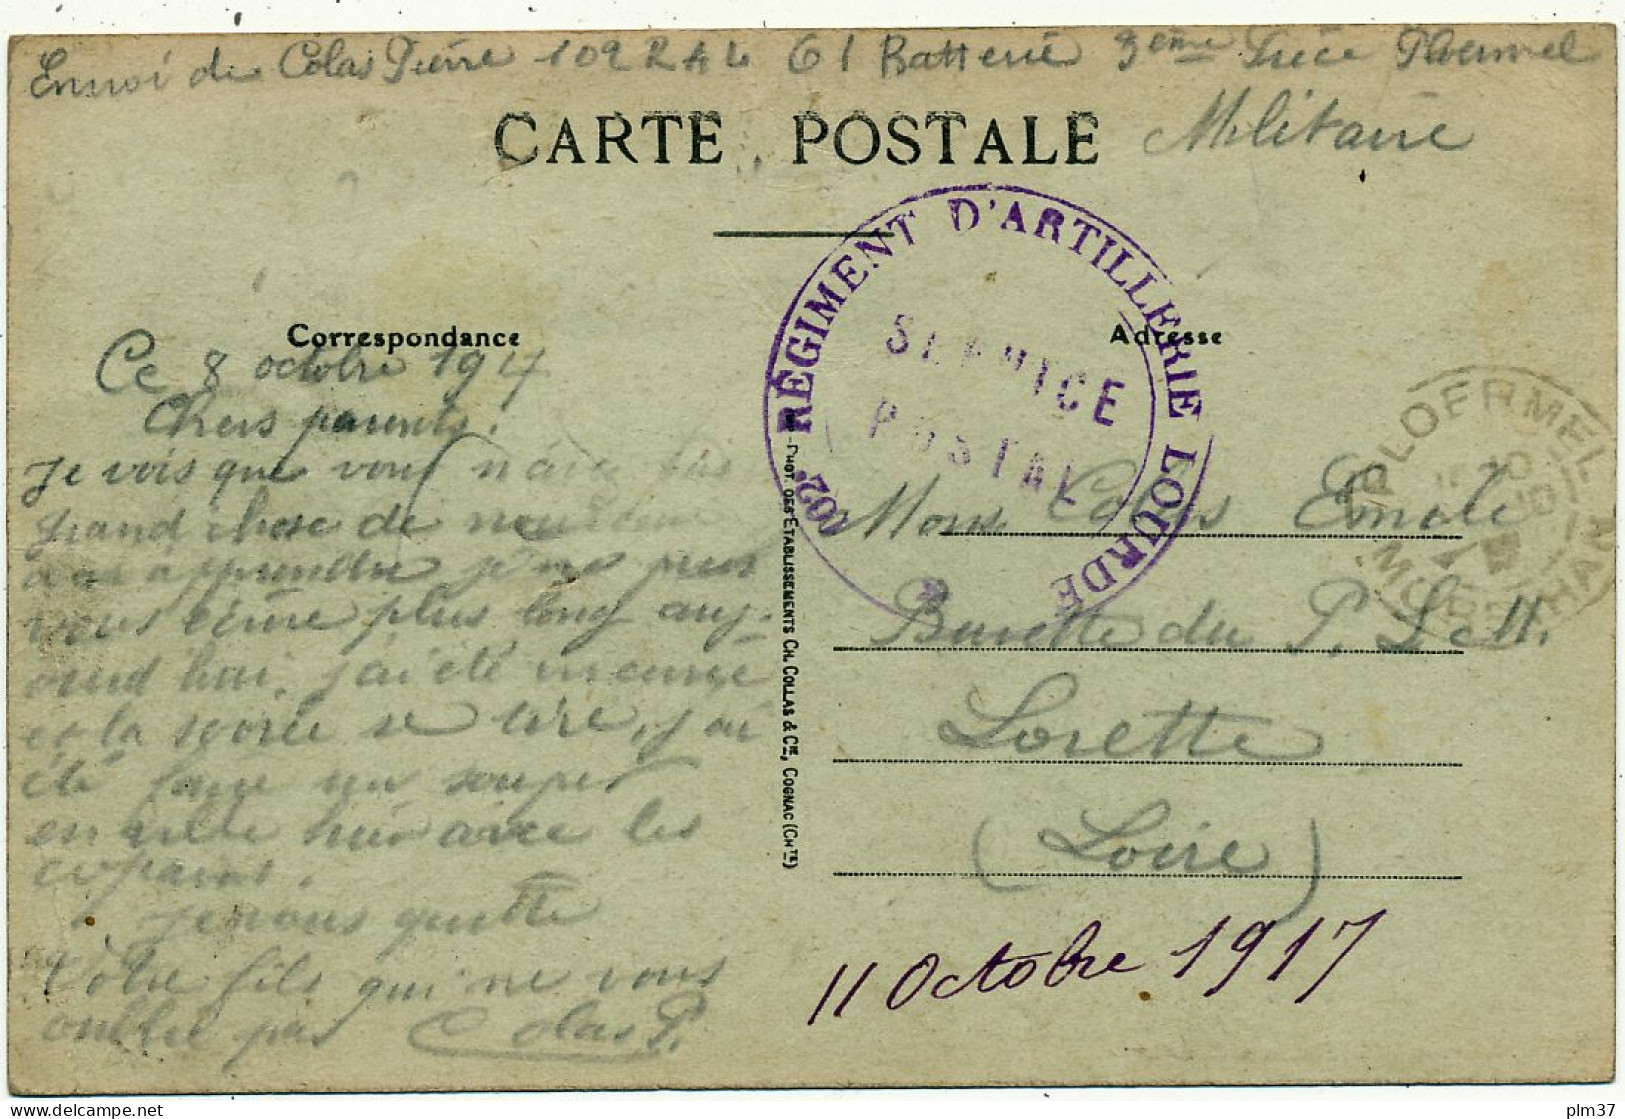 Envoi de Colas Pierre 102 RAL 61 Batterie 3ème Pièce Ploermel
Militaire
CARTE POSTALE
102e RÉGIMENT D'ARTILLERIE LOURDE
SERVICE
POSTAL
Correspondance
Adresse
PLOERMEL
MORBIHAN
Ce 8 octobre 1917
Chers parents.
Je vois que vous n'avez pas
grand chose de nouveau
à m'apprendre je ne peux
vous écrire plus long auj-
ourd'hui, j'ai été
et la soirée se tire, j'ai
été faire un souper
en ville hier avec les
copains.
Je vous quitte
Votre fils qui ne vous
oublie pas Colas P.
PHOT. DES ETABLISSEMENTS CH. COLLAS & CIE, COGNAC (CHTE)
Mons Colas
Buvette du P. L. M.
Lorette
(Loire)
11 Octobre 1917
plm37